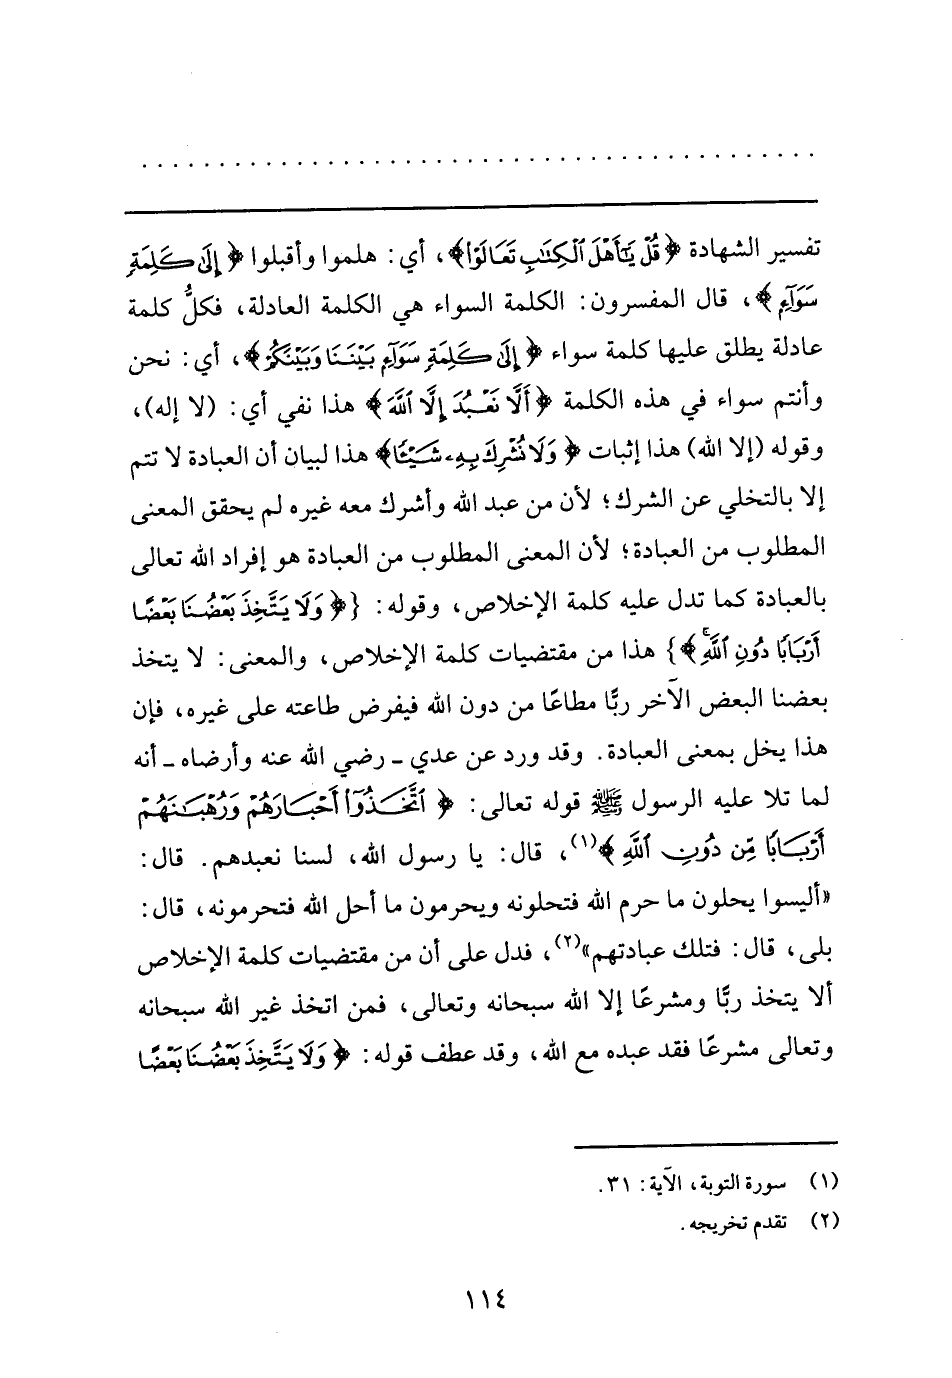 تفسير الشهادة ﴿قُلْ يَٰٓأَهْلَ ٱلْكِتَٰبِ تَعَالَوْا۟﴾، أي: هلموا وأقبلوا ﴿إِلَىٰ كَلِمَةٍ
سَوَآءٍ﴾، قال المفسرون: الكلمة السواء هي الكلمة العادلة، فكلُّ كلمة
عادلة يطلق عليها كلمة سواء ﴿إِلَىٰ كَلِمَةٍ سَوَآءٍ بَيْنَنَا وَبَيْنَكُمْ﴾، أي: نحن
وأنتم سواء في هذه الكلمة ﴿أَلَّا نَعْبُدَ إِلَّا ٱللَّهَ﴾ هذا نفي أي: (لا إله)،
وقوله (إلا الله) هذا إثبات ﴿وَلَا نُشْرِكَ بِهِۦ شَيْـًٔا﴾ هذا لبيان أن العبادة لا تتم
إلا بالتخلي عن الشرك؛ لأن من عبد الله وأشرك معه غيره لم يحقق المعنى
المطلوب من العبادة؛ لأن المعنى المطلوب من العبادة هو إفراد الله تعالى
بالعبادة كما تدل عليه كلمة الإخلاص، وقوله: {﴿وَلَا يَتَّخِذَ بَعْضُنَا بَعْضًا
أَرْبَابًا مِّن دُونِ ٱللَّهِ ۚ﴾} هذا من مقتضيات كلمة الإخلاص، والمعنى: لا يتخذ
بعضنا البعض الآخر ربًّا مطاعًا من دون الله فيفرض طاعته على غيره، فإن
هذا يخل بمعنى العبادة. وقد ورد عن عدي ـ رضي الله عنه وأرضاه ـ أنه
لما تلا عليه الرسول ﷺ قوله تعالى: ﴿ٱتَّخَذُوٓا۟ أَحْبَارَهُمْ وَرُهْبَٰنَهُمْ
أَرْبَابًا مِّن دُونِ ٱللَّهِ﴾(١)، قال: يا رسول الله، لسنا نعبدهم. قال:
«أليسوا يحلون ما حرم الله فتحلونه ويحرمون ما أحل الله فتحرمونه، قال:
بلى، قال: فتلك عبادتهم»(٢)، فدل على أن من مقتضيات كلمة الإخلاص
ألا يتخذ ربًّا ومشرعًا إلا الله سبحانه وتعالى، فمن اتخذ غير الله سبحانه
وتعالى مشرعًا فقد عبده مع الله، وقد عطف قوله: ﴿وَلَا يَتَّخِذَ بَعْضُنَا بَعْضًا
(١) سورة التوبة، الآية: ٣١.
(٢) تقدم تخريجه.
١١٤